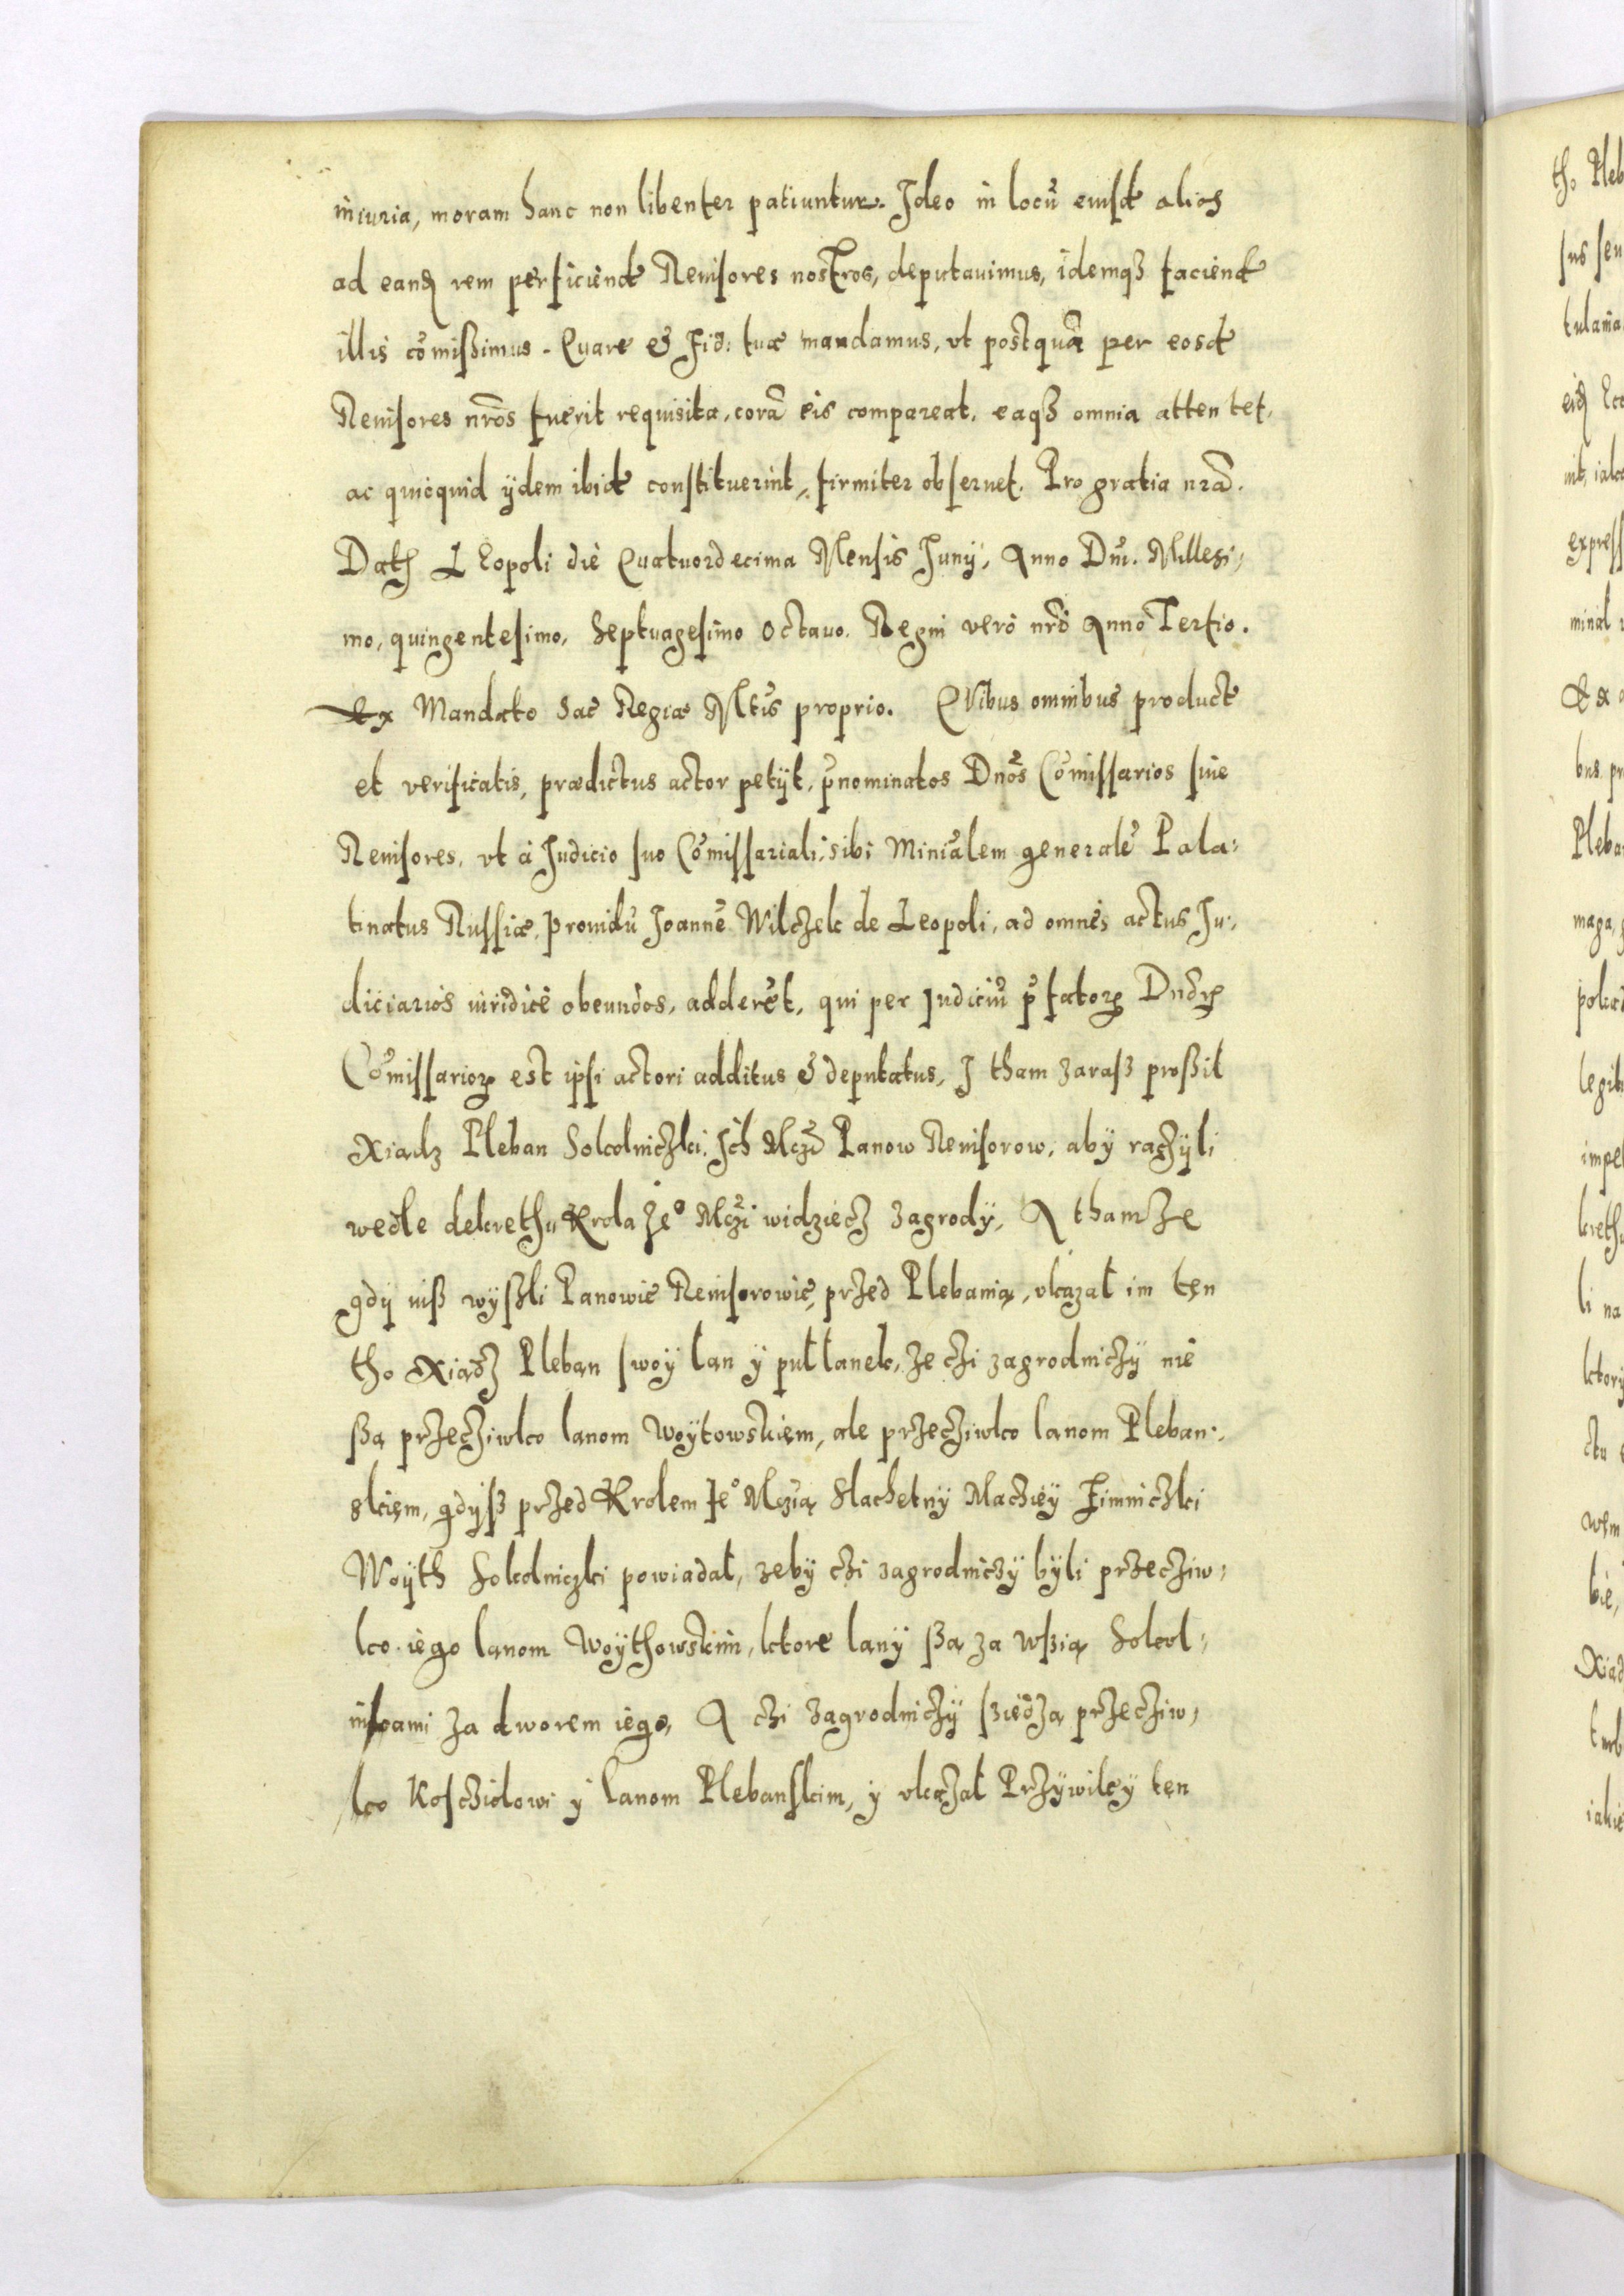 iniuria, moram hanc non libenter patiuntur. Ideo in locū eiusd alios
ad eandē rem perficiend Reuisores nostros, deputauimus, idemqȝ faciend
illis cōmißimus. Quare & Fid: tuæ mandamus, vt postquā per eosd
Reuisores nrōs fuerit requisita, corā eis compareat, eaqȝ omnia attentet,
ac quicquid ÿdem ibid constituerint, firmiter obseruet. Pro gratia nrā.
Dat. Leopoli die Quatuordecima Mensis Junÿ, Anno Dnī. Millesi-
mo, quingentesimo, Septuagesimo octauo. Regni vero nrī Anno Tertio.
Ex Mandato Sac Regiæ Mtis proprio. QVibus omnibus product
et verificatis, prædictus actor petÿt, p̄nominatos Dnōs Cōmissarios siue
Reuisores, vt à Judicio suo Cōmissariali, sibi Miniālem generalē Pala-
tinatus Russiæ, prouidū Joannē Wilczek de Leopoli, ad omnes actus Ju-
diciarios iuridicè obeundos, adderēt, qui per Judiciū p̄fatorꝝ Dnōrꝝ
Cōmissariorꝝ est ipsi actori additus & deputatus, J tham zaraß proßil
Xiadz Pleban Sokolniczki, Jch Mczi Panow Reuisorow, abÿ raczÿli
wedle dekrethu Krola Je° Mczi widziecz zagrodÿ, A thamże
gdÿ iuß wÿßli Panowie Reuisorowie, przed Plebanią, vkazał im ten
tho Xiadz Pleban swoÿ łan ÿ pułłanek, że czi zagrodniczÿ nie
ßą przecziwko lanom Woÿtowskiem, ale przecziwko lanom Pleban-
skiem, gdÿß przed Krolem Je° Mczią Slachetnÿ Macziey Zimniczki
Woÿth Sokolniczki powiadał, żebÿ czi zagrodniczÿ bÿli przecziw-
ko iego lanom Woÿthowskim, ktore lanÿ ßą za wßią Sokol-
nikami za dworem iego, A czi zagrodniczÿ szedzą przecziw-
ko Kosczidowi ÿ lanom Plebanskim, ÿ vkazał Przÿwileÿ ten